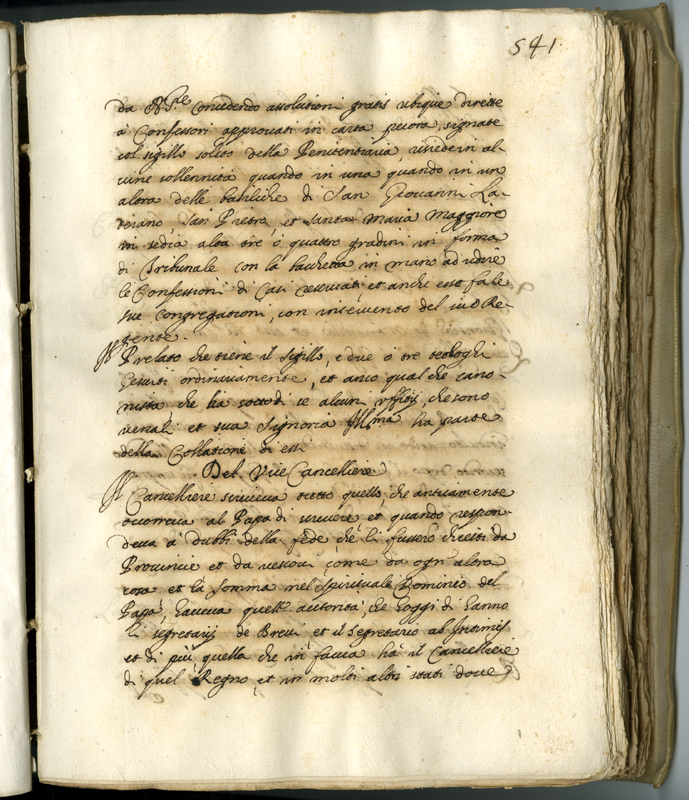 541
da N. Sre Concedendo assolutioni gratis ubique dirette
a Confessori approvati in carta pecora, signate
col sigillo solito della Penitentiaria, risiede in al-
cune sollennità quando in una quando in un
altra delle basiliche di San Giovanni La-
terano, San Pietro, et Santa Maria Maggiore
in sedia alta tre ò quattro gradini in forma
di Tribunale con la bacchetta in mano ad udire
le Confessioni di Casi reservati, et anche esso fa le
sue congregationi, con intervento del suo Re-
gente.
Il Prelato che tiene il sigillo, e due ò tre teologhi
Gesuiti ordinariamente, et anco qual che cano-
nista che ha sotto di se alcuni uffitij, che sono
venali et sua Signoria Illma ha parte
della Collatione di essi
Del ViceCancelliere
Il Cancelliere scriveva tutto quello, che anticamente
occorreva al Papa di scrivere, et quando respon-
deva a dubbi della fede, che li fussero chiesti da
Provincie et da vescovi come da ogn altra
cosa et in somma nel spirituale Dominio del
Papa, haveva quell autorità, che hoggi di hanno
li segretarij de Brevi, et il segretario
et di più quella che in faccia hà il Cancelliere
di quel Regno, et in molti altri stati dove